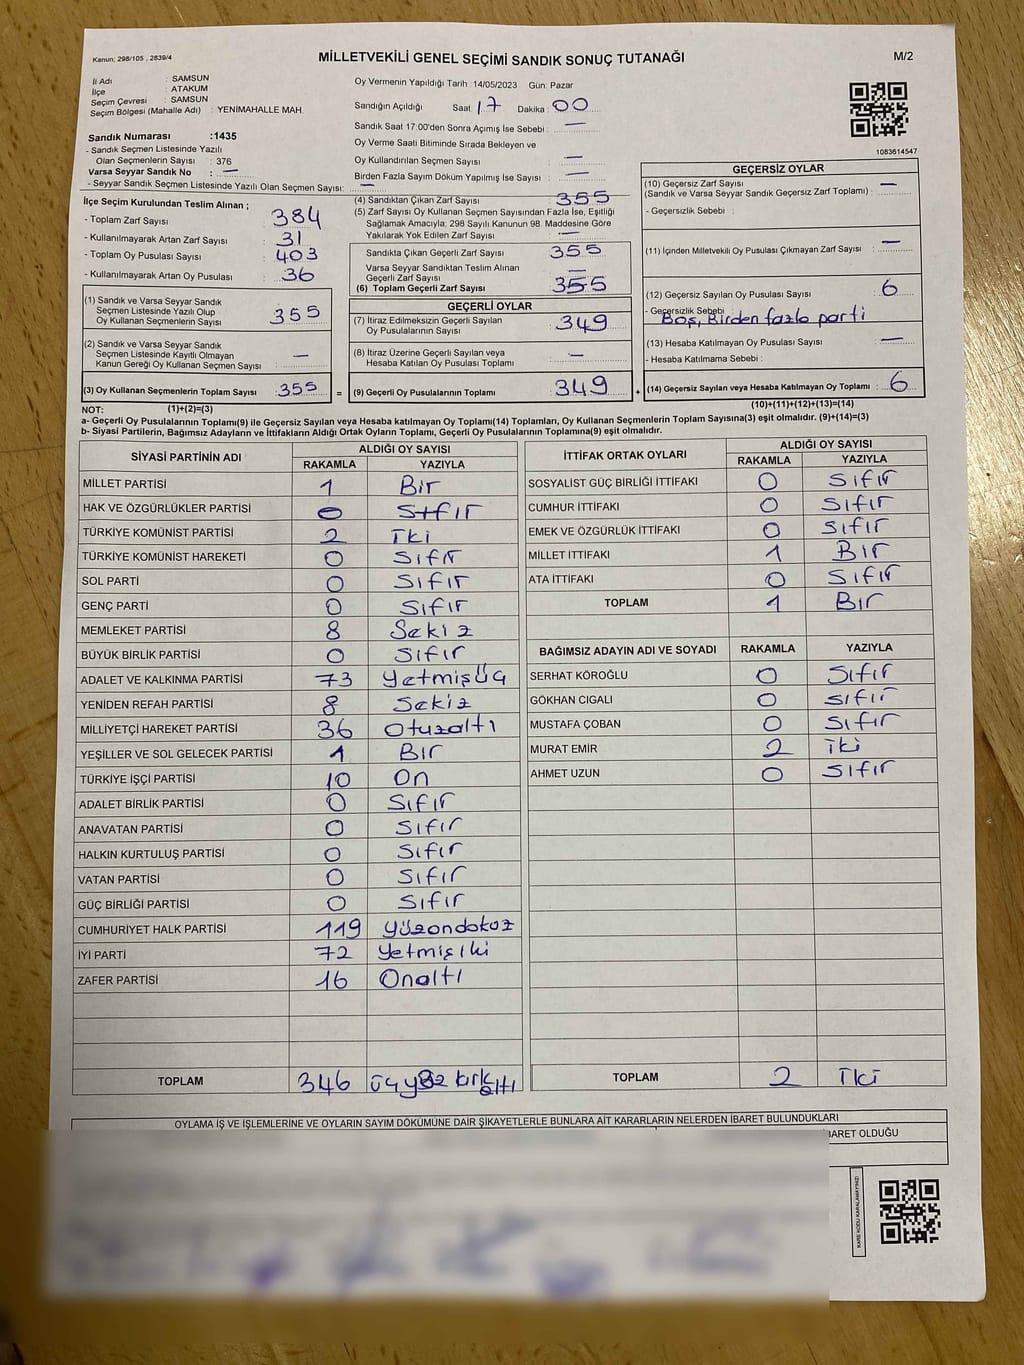 Kanun; 298/105 , 2839/4
MİLLETVEKİLİ GENEL SEÇİMİ SANDIK SONUÇ TUTANAĞI
M/2
İl Adı : SAMSUN
İlçe : ATAKUM
Seçim Çevresi : SAMSUN
Seçim Bölgesi (Mahalle Adı) : YENİMAHALLE MAH.
Sandık Numarası :1435
- Sandık Seçmen Listesinde Yazılı
Olan Seçmenlerin Sayısı : 376
Varsa Seyyar Sandık No : —
- Seyyar Sandık Seçmen Listesinde Yazılı Olan Seçmen Sayısı: —
Oy Vermenin Yapıldığı Tarih :14/05/2023 Gün: Pazar
Sandığın Açıldığı Saat 17 Dakika : 00
Sandık Saat 17:00'den Sonra Açımış İse Sebebi : —
Oy Verme Saati Bitiminde Sırada Bekleyen ve
Oy Kullandırılan Seçmen Sayısı : —
Birden Fazla Sayım Döküm Yapılmış İse Sayısı : —
1083614547
İlçe Seçim Kurulundan Teslim Alınan ;
- Toplam Zarf Sayısı : 384
- Kullanılmayarak Artan Zarf Sayısı : 31
- Toplam Oy Pusulası Sayısı : 403
- Kullanılmayarak Artan Oy Pusulası : 36
(1) Sandık ve Varsa Seyyar Sandık
Seçmen Listesinde Yazılı Olup
Oy Kullanan Seçmenlerin Sayısı : 355
(2) Sandık ve Varsa Seyyar Sandık
Seçmen Listesinde Kayıtlı Olmayan
Kanun Gereği Oy Kullanan Seçmen Sayısı : —
(3) Oy Kullanan Seçmenlerin Toplam Sayısı : 355 =
(4) Sandıktan Çıkan Zarf Sayısı : 355
(5) Zarf Sayısı Oy Kullanan Seçmen Sayısından Fazla İse, Eşitliği
Sağlamak Amacıyla; 298 Sayılı Kanunun 98. Maddesine Göre
Yakılarak Yok Edilen Zarf Sayısı : —
Sandıkta Çıkan Geçerli Zarf Sayısı : 355
Varsa Seyyar Sandıktan Teslim Alınan
Geçerli Zarf Sayısı : —
(6) Toplam Geçerli Zarf Sayısı : 355
GEÇERLİ OYLAR
(7) İtiraz Edilmeksizin Geçerli Sayılan
Oy Pusulalarının Sayısı : 349
(8) İtiraz Üzerine Geçerli Sayılan veya
Hesaba Katılan Oy Pusulası Toplamı : —
(9) Geçerli Oy Pusulalarının Toplamı : 349 +
GEÇERSİZ OYLAR
(10) Geçersiz Zarf Sayısı : —
(Sandık ve Varsa Seyyar Sandık Geçersiz Zarf Toplamı)
- Geçersizlik Sebebi :
(11) İçinden Milletvekili Oy Pusulası Çıkmayan Zarf Sayısı : —
(12) Geçersiz Sayılan Oy Pusulası Sayısı : 6
- Geçersizlik Sebebi : Boş, Birden fazla parti
(13) Hesaba Katılmayan Oy Pusulası Sayısı : —
- Hesaba Katılmama Sebebi :
(14) Geçersiz Sayılan veya Hesaba Katılmayan Oy Toplamı : 6
NOT: (1)+(2)=(3)
(10)+(11)+(12)+(13)=(14)
a- Geçerli Oy Pusulalarının Toplamı(9) ile Geçersiz Sayılan veya Hesaba katılmayan Oy Toplamı(14) Toplamları, Oy Kullanan Seçmenlerin Toplam Sayısına(3) eşit olmalıdır. (9)+(14)=(3)
b- Siyasi Partilerin, Bağımsız Adayların ve İttifakların Aldığı Ortak Oyların Toplamı, Geçerli Oy Pusulalarının Toplamına(9) eşit olmalıdır.
SİYASİ PARTİNİN ADI ALDIĞI OY SAYISI
RAKAMLA YAZIYLA
MİLLET PARTİSİ 1 Bir
HAK VE ÖZGÜRLÜKLER PARTİSİ 0 Sıfır
TÜRKİYE KOMÜNİST PARTİSİ 2 İki
TÜRKİYE KOMÜNİST HAREKETİ 0 Sıfır
SOL PARTİ 0 Sıfır
GENÇ PARTİ 0 Sıfır
MEMLEKET PARTİSİ 8 Sekiz
BÜYÜK BİRLİK PARTİSİ 0 Sıfır
ADALET VE KALKINMA PARTİSİ 73 Yetmişüç
YENİDEN REFAH PARTİSİ 8 Sekiz
MİLLİYETÇİ HAREKET PARTİSİ 36 Otuzaltı
YEŞİLLER VE SOL GELECEK PARTİSİ 1 Bir
TÜRKİYE İŞÇİ PARTİSİ 10 On
ADALET BİRLİK PARTİSİ 0 Sıfır
ANAVATAN PARTİSİ 0 Sıfır
HALKIN KURTULUŞ PARTİSİ 0 Sıfır
VATAN PARTİSİ 0 Sıfır
GÜÇ BİRLİĞİ PARTİSİ 0 Sıfır
CUMHURİYET HALK PARTİSİ 119 Yüzondokuz
İYİ PARTİ 72 Yetmişiki
ZAFER PARTİSİ 16 Onaltı
TOPLAM 346 üçyüz kırkaltı
İTTİFAK ORTAK OYLARI ALDIĞI OY SAYISI
RAKAMLA YAZIYLA
SOSYALİST GÜÇ BİRLİĞİ İTTİFAKI 0 Sıfır
CUMHUR İTTİFAKI 0 Sıfır
EMEK VE ÖZGÜRLÜK İTTİFAKI 0 Sıfır
MİLLET İTTİFAKI 1 Bir
ATA İTTİFAKI 0 Sıfır
TOPLAM 1 Bir
BAĞIMSIZ ADAYIN ADI VE SOYADI RAKAMLA YAZIYLA
SERHAT KÖROĞLU 0 Sıfır
GÖKHAN CIGALI 0 Sıfır
MUSTAFA ÇOBAN 0 Sıfır
MURAT EMİR 2 İki
AHMET UZUN 0 Sıfır
TOPLAM 2 İki
OYLAMA İŞ VE İŞLEMLERİNE VE OYLARIN SAYIM DÖKÜMÜNE DAİR ŞİKAYETLERLE BUNLARA AİT KARARLARIN NELERDEN İBARET BULUNDUKLARI
BARET OLDUĞU
KARE KODU KARALAMAYINIZ!